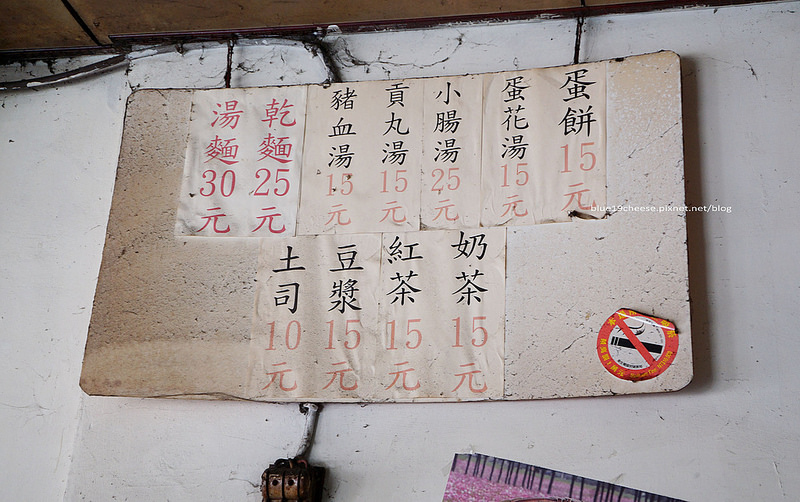 蛋餅15元
蛋花湯15元
小腸湯25元
貢丸湯15元
豬血湯15元
乾麵25元
湯麵30元
奶茶15元
紅茶15元
豆漿15元
土司10元
blue19cheese.pixnet.net/blog